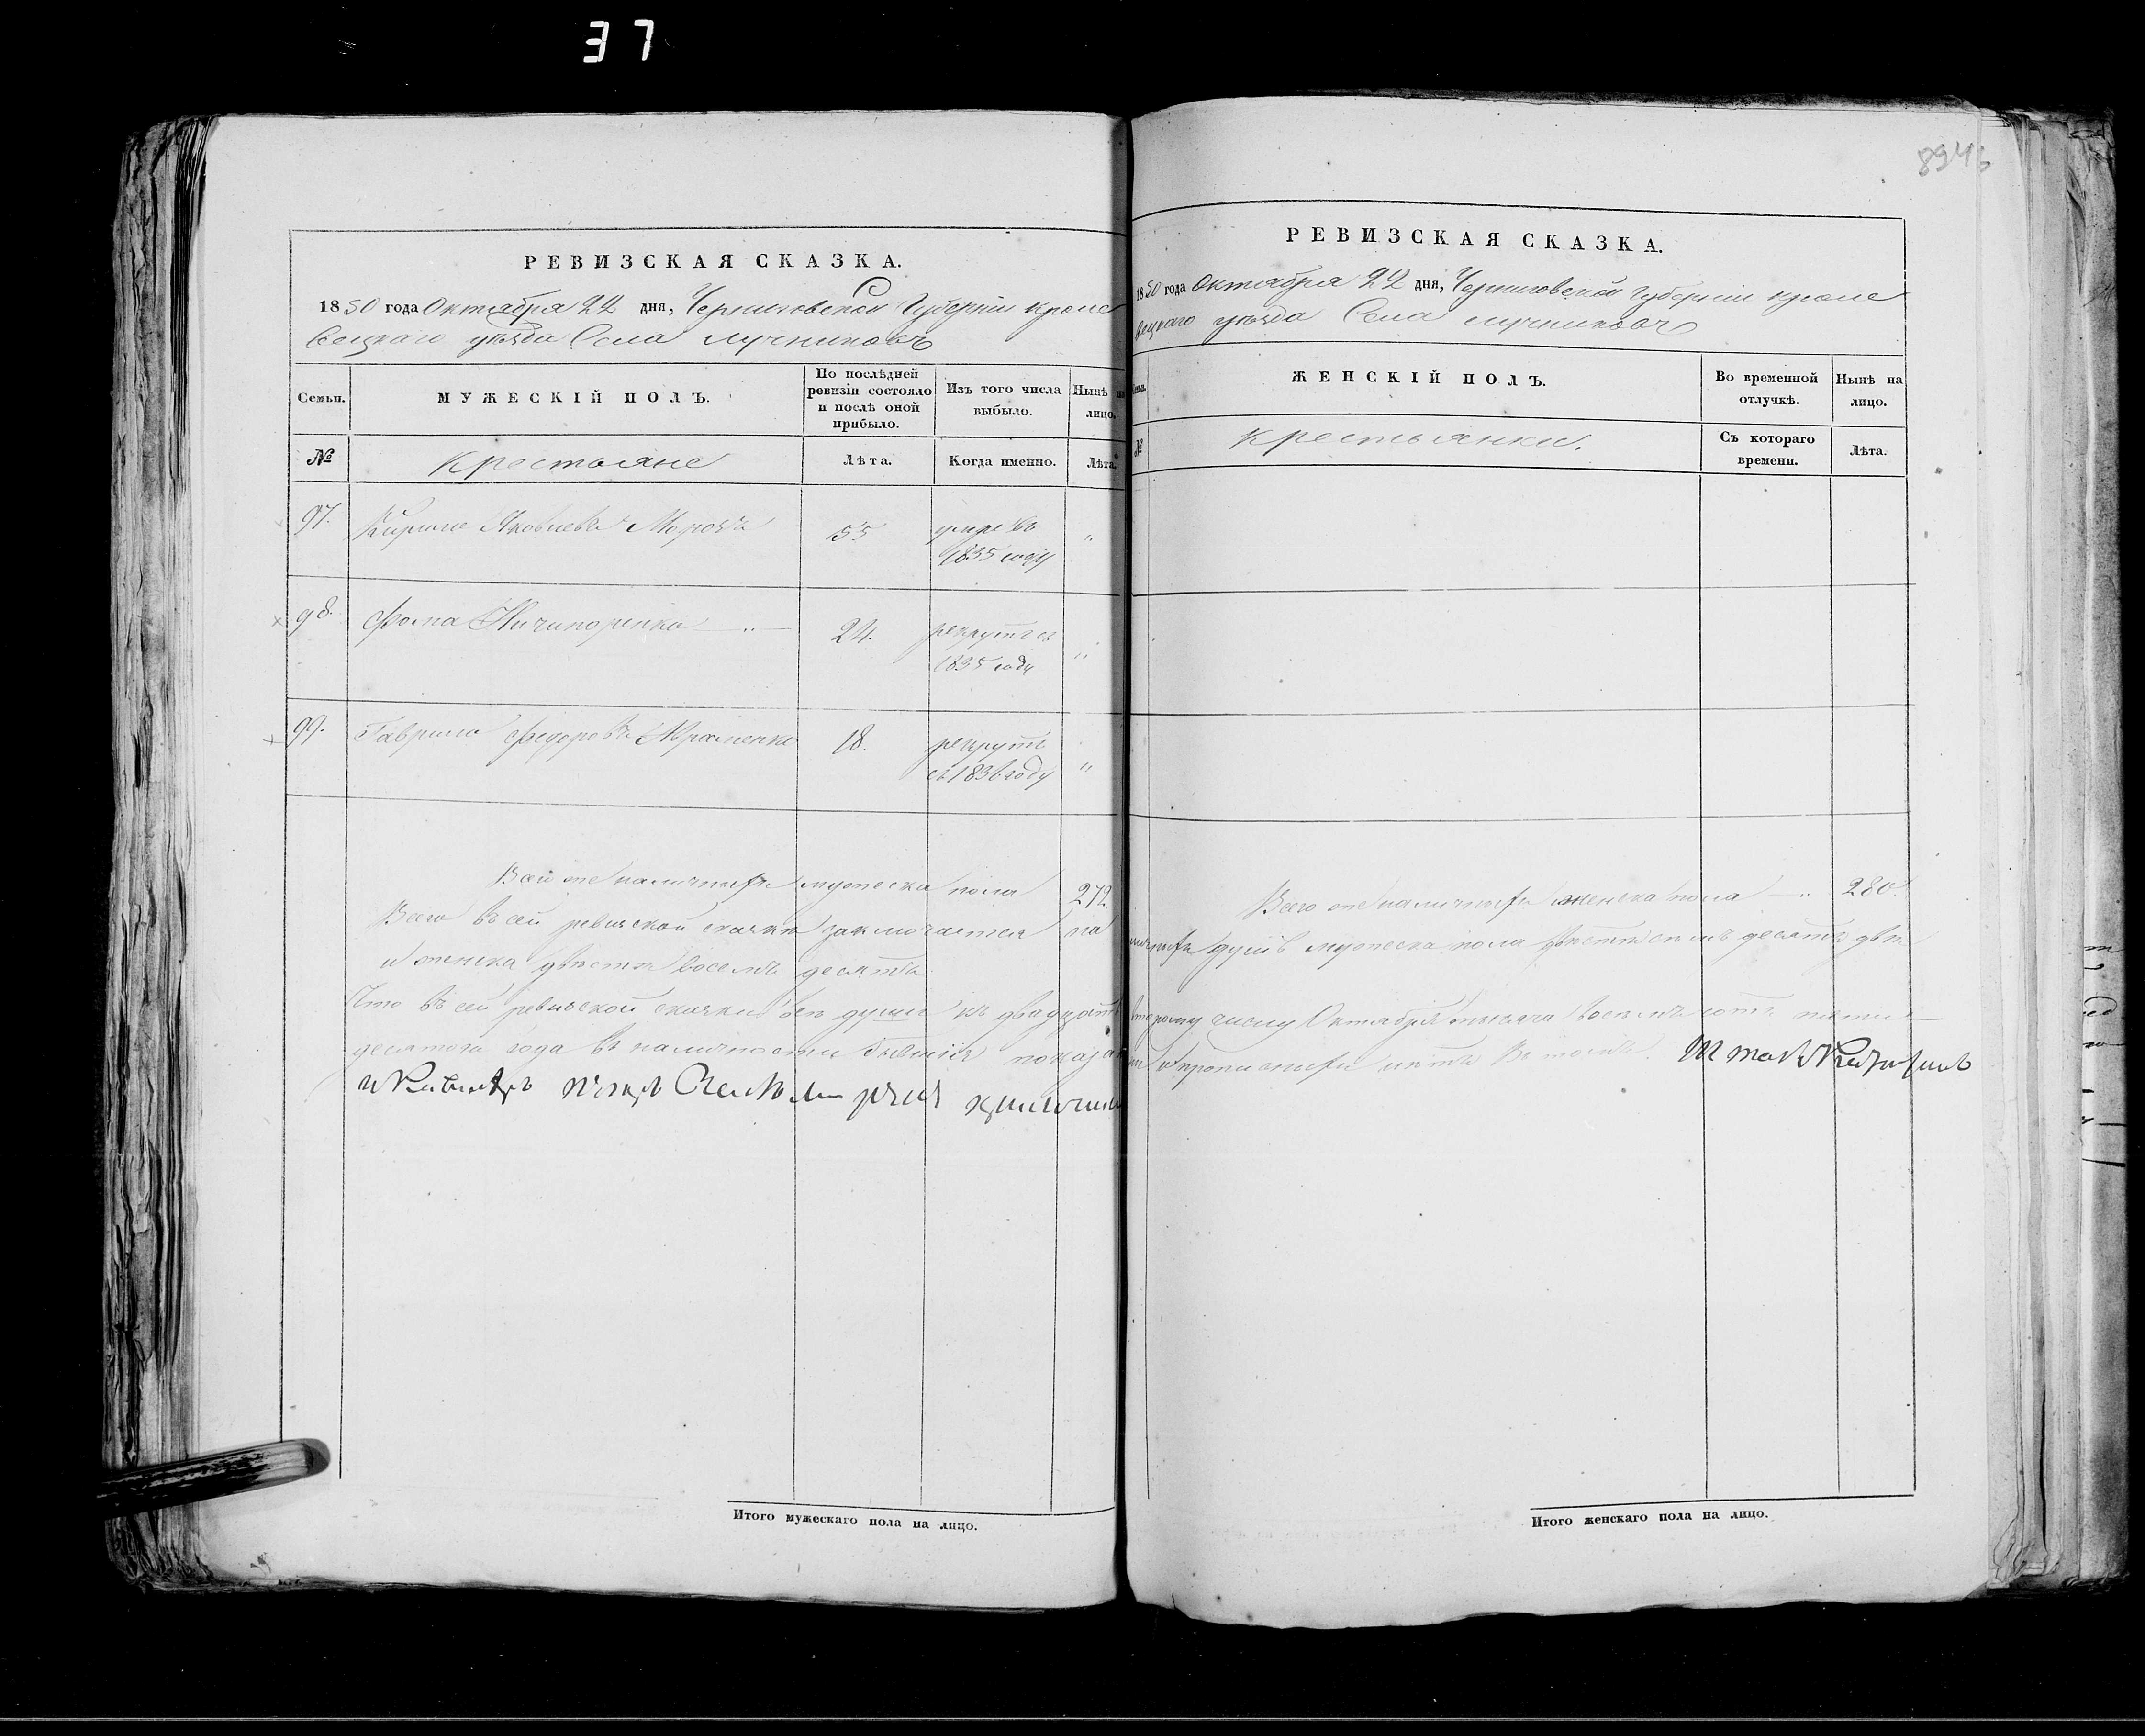 37
8946
РЕВИЗСКАЯ СКАЗКА.
1850 года Октября 22 дня, Черниговской Губернии Кроле
вецкаго уезда Села Лучниковъ
Семьи.
МУЖЕСКІЙ ПОЛЪ.
По послѣдней ревизіи состояло и послѣ оной прибыло.
Изъ того числа выбыло.
Нынѣ на лицо.
№
Крестьяне
Лѣта.
Когда именно.
Лѣта.
97.
Кирило Яковлевъ Морозъ
55
умре въ
1835 году
"
98.
Фома Ничипоренко
24.
рекрутъ съ
1835 году
"
99.
Гаврило Федоровъ
18.
рекрутъ
съ 1836 году
"
Всего наличныхъ мужеска пола 272.
Всего въ сей ревизской сказки заключается на
и женска двести восемь десятъ
Что въ сей ревизской сказки все души къ двадцать
десятого года въ наличности бывшія показан
РЕВИЗСКАЯ СКАЗКА.
1850 года Октября 22 дня, Черниговской Губернии Кроле
вецкаго уезда Села Лучниковъ
ЖЕНСКІЙ ПОЛЪ.
Во временной отлучкѣ.
Нынѣ на лицо.
№
Крестьянки.
Съ котораго времени.
Лѣта.
Всего наличныхъ женска пола 280.
личныхъ душъ мужеска пола двести семъ десятъ две
второму числу Октября тысяча восемь сотъ пяти
Итого мужескаго пола на лицо.
Итого женскаго пола на лицо.